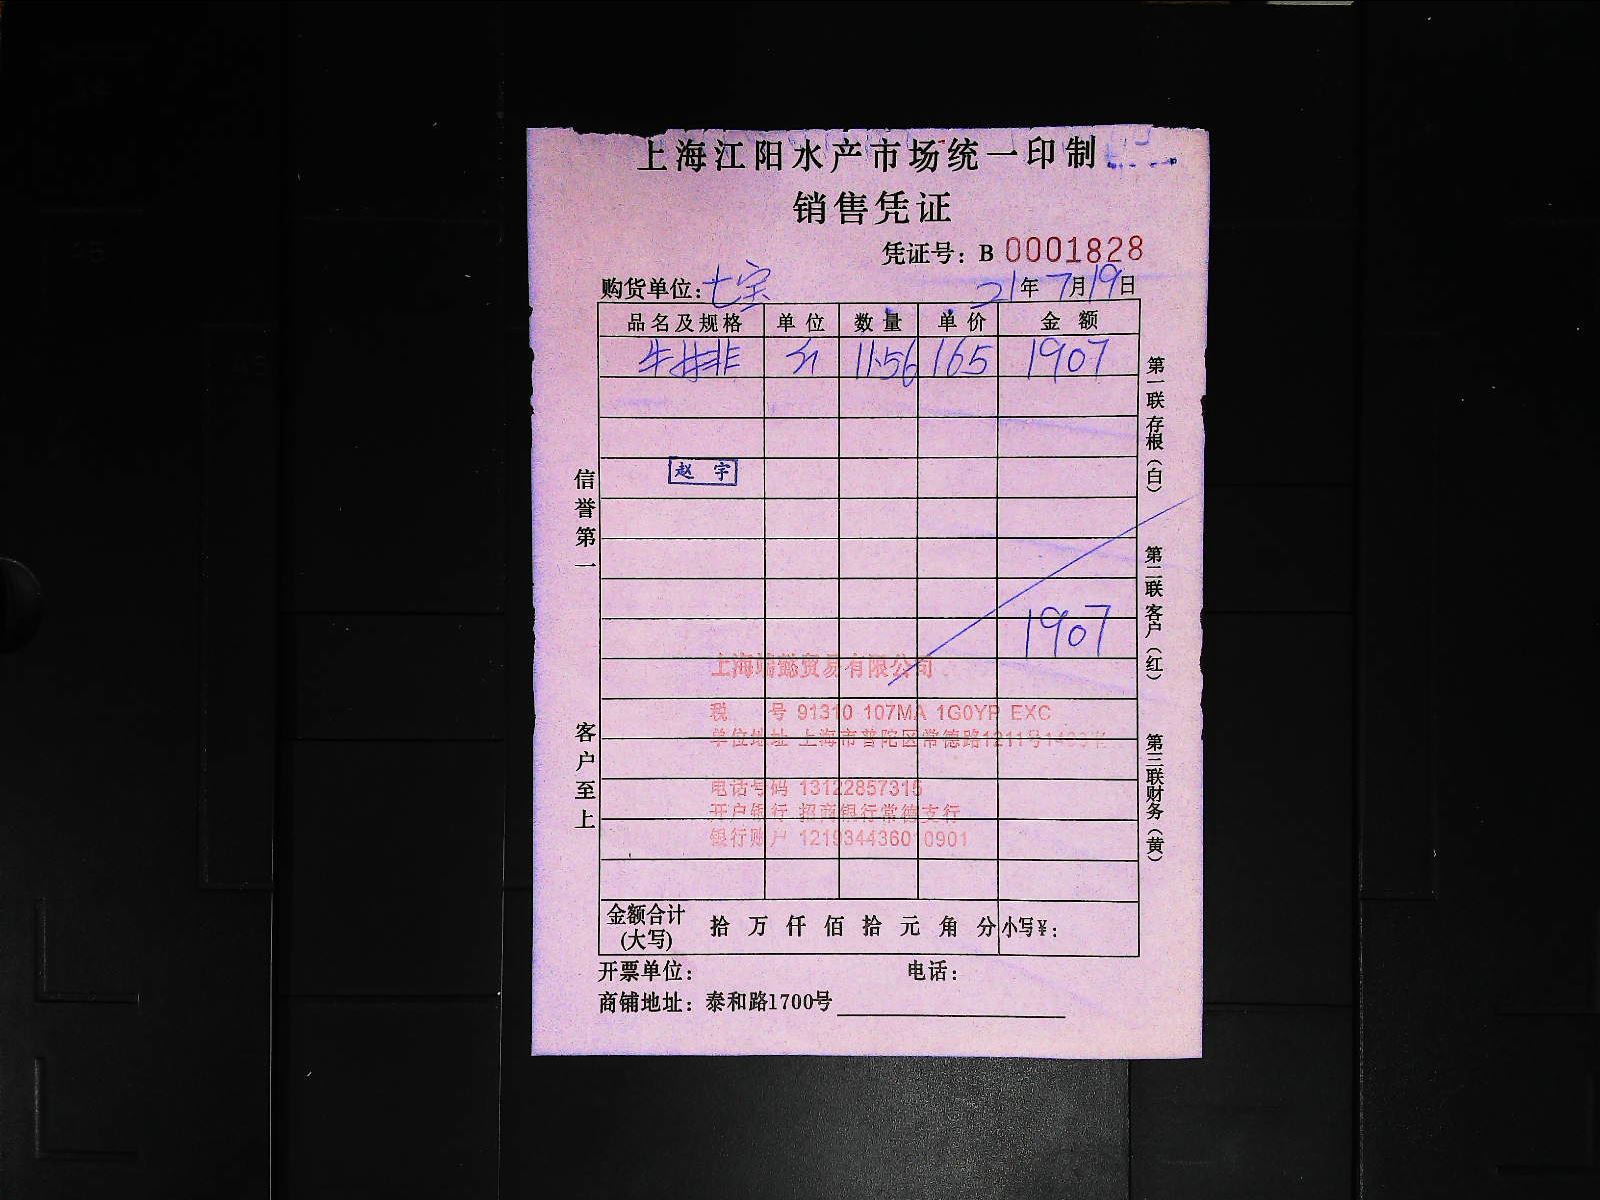 上海江阳水产市场统一印制
销售凭证
凭证号：B 0001828
购货单位：七宝 21年7月19日
品名及规格 单位 数量 单价 金额
牛排 斤 11.56 165 1907
赵宇
1907
上海端懿贸易有限公司
税 号 91310 107MA 1G0YP EXC
单位地址 上海市普陀区常德路1211号1403室
电话号码 13122857315
开户银行 招商银行常德支行
银行账户 121934436010901
金额合计(大写) 拾 万 仟 佰 拾 元 角 分 小写¥：
开票单位： 电话：
商铺地址：泰和路1700号
信誉第一 客户至上
第一联 存根（白） 第二联 客户（红） 第三联 财务（黄）